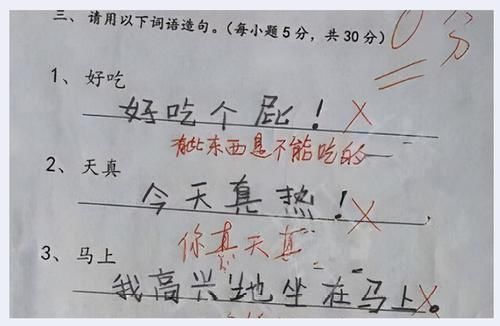 三、请用以下词语造句。（每小题5分，共30分）
0分
1、好吃
好吃个屁！
有些东西是不能吃的
2、天真
今天真热！
你真天真
3、马上
我高兴地坐在马上。